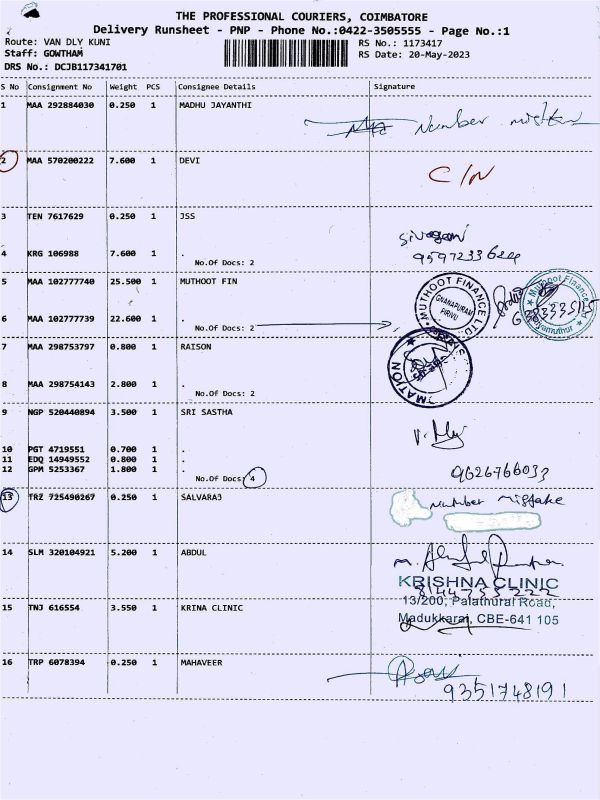 THE PROFESSIONAL COURIERS, COIMBATORE
Delivery Runsheet - PNP - Phone No.:0422-3505555 - Page No.:1
Route: VAN DLY KUNI RS No.: 1173417
Staff: GOWTHAM RS Date: 20-May-2023
DRS No.: DCJB117341701
S No Consignment No Weight PCS Consignee Details Signature
1 MAA 292884030 0.250 1 MADHU JAYANTHI
Number mistake
2 MAA 570200222 7.600 1 DEVI
C/N
3 TEN 7617629 0.250 1 JSS
Sivagami
4 KRG 106988 7.600 1 .
9597233624
No.Of Docs: 2
5 MAA 102777740 25.500 1 MUTHOOT FIN
MUTHOOT FINANCE LTD
GNANAPURAM
PIRIVU
Muthoot Finance Ltd
6 MAA 102777739 22.600 1 .
No.Of Docs: 2
7 MAA 298753797 0.800 1 RAISON
MATION
8 MAA 298754143 2.800 1 .
No.Of Docs: 2
9 NGP 520440894 3.500 1 SRI SASTHA
10 PGT 4719551 0.700 1 .
11 EDQ 14949552 0.800 1 .
12 GPM 5253367 1.800 1 .
No.Of Docs: 4
9626766033
13 TRZ 725490267 0.250 1 SALVARAJ
Number mistake
14 SLM 320104921 5.200 1 ABDUL
KRISHNA CLINIC
13/200, Palathurai Road,
Madukkarai, CBE-641 105
15 TNJ 616554 3.550 1 KRINA CLINIC
16 TRP 6078394 0.250 1 MAHAVEER
9351748191